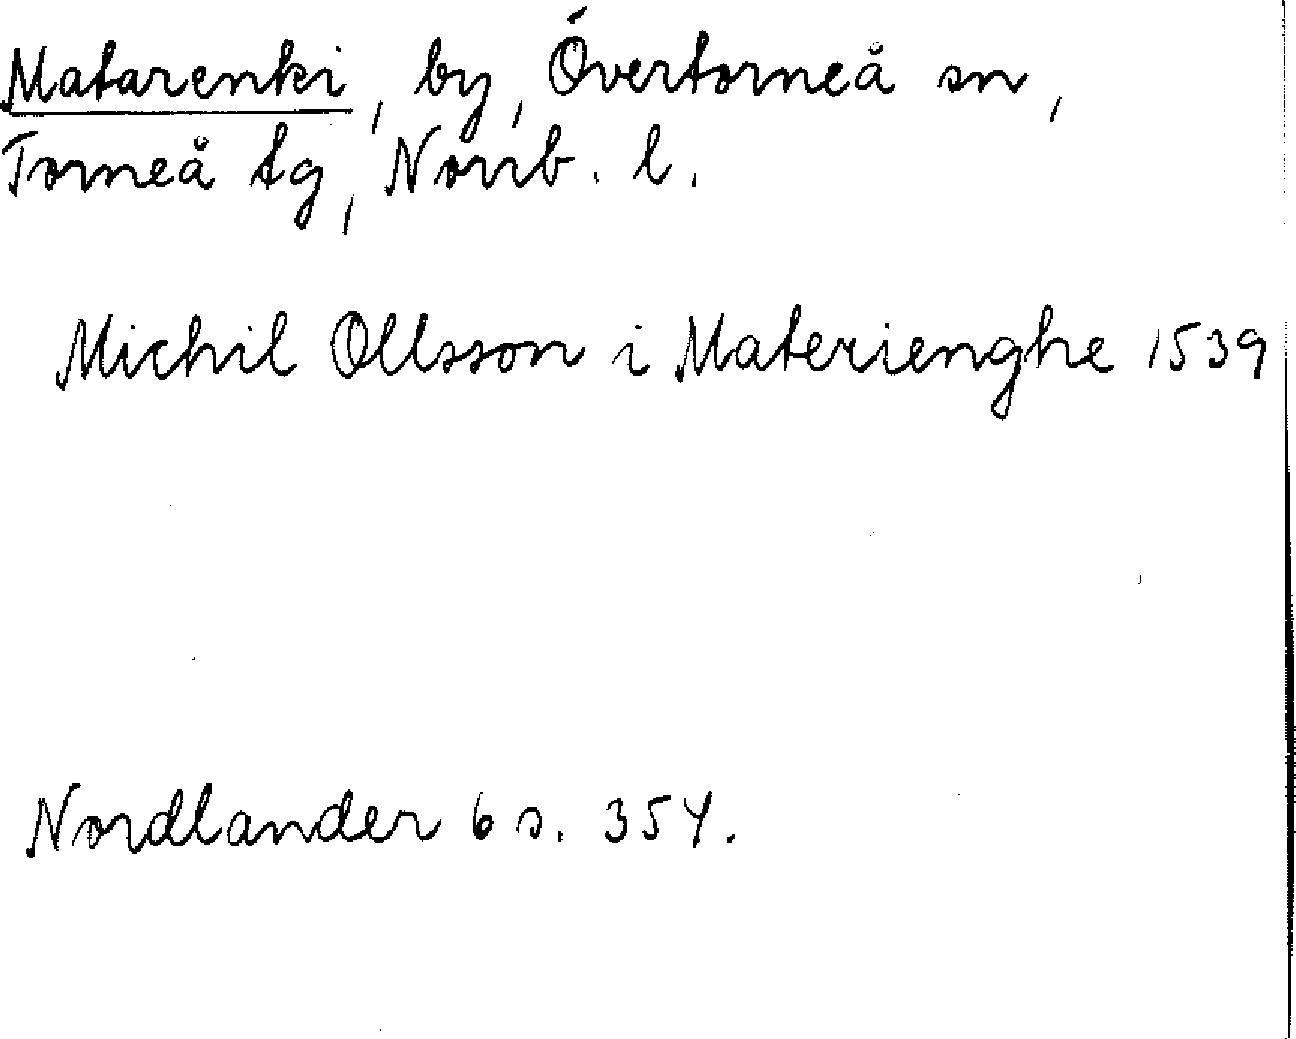 Matarenki, by, Övertorneå sn,
Torneå tg, Norrb. l.
Michil Ollsson i Materienghe 1539
Nordlander 6 s. 354.